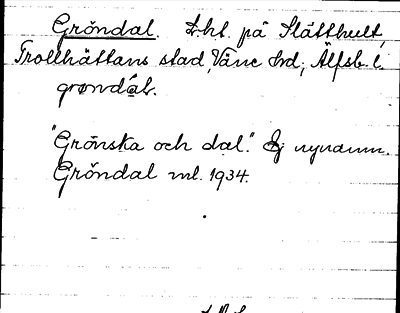 Gröndal. Lht. på Slätthult,
Trollhättans stad, Väne hd, Älfsb. l.
grøndál.
"Grönska och dal." Ej nynamn.
Gröndal ml. 1934.